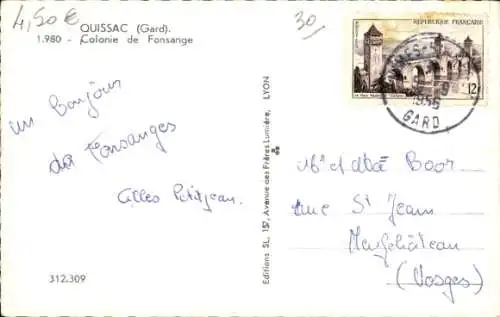 4,50€
30
QUISSAC (Gard).
1.980 - Colonie de Fonsange
RÉPUBLIQUE FRANÇAISE
12F
1956
GARD
un Bonjour
de Fonsanges
Gilles Petitjean.
Editions SL, 157, Avenue des Frères Lumière, LYON
Mr et Boor
rue St Jean
Neufchâteau
(Vosges)
312.309